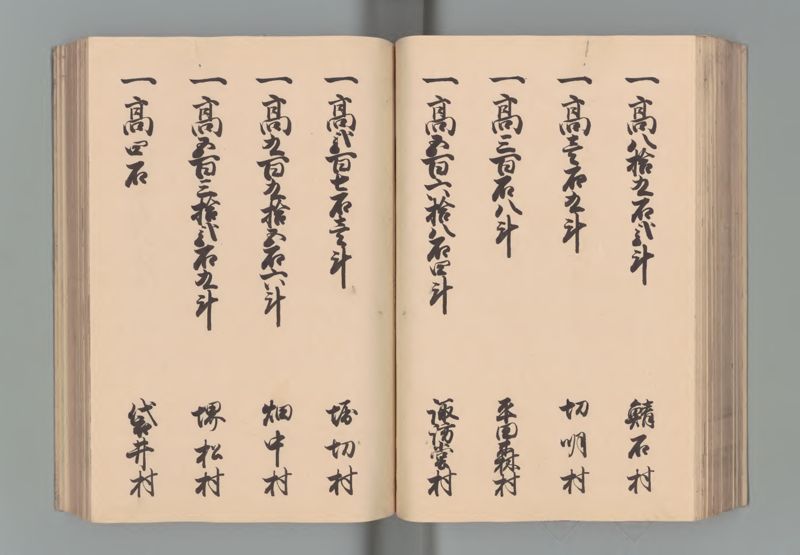 一高八拾九石弐斗 鯖石村
一高壱石九斗 切明村
一高三百石八斗 平田森村
一高五百六拾八石四斗 諏訪堂村
一高弐百七石壱斗 堀切村
一高九百九拾五石六斗 畑中村
一高五百三拾弐石九斗 堺松村
一高四石 袋井村